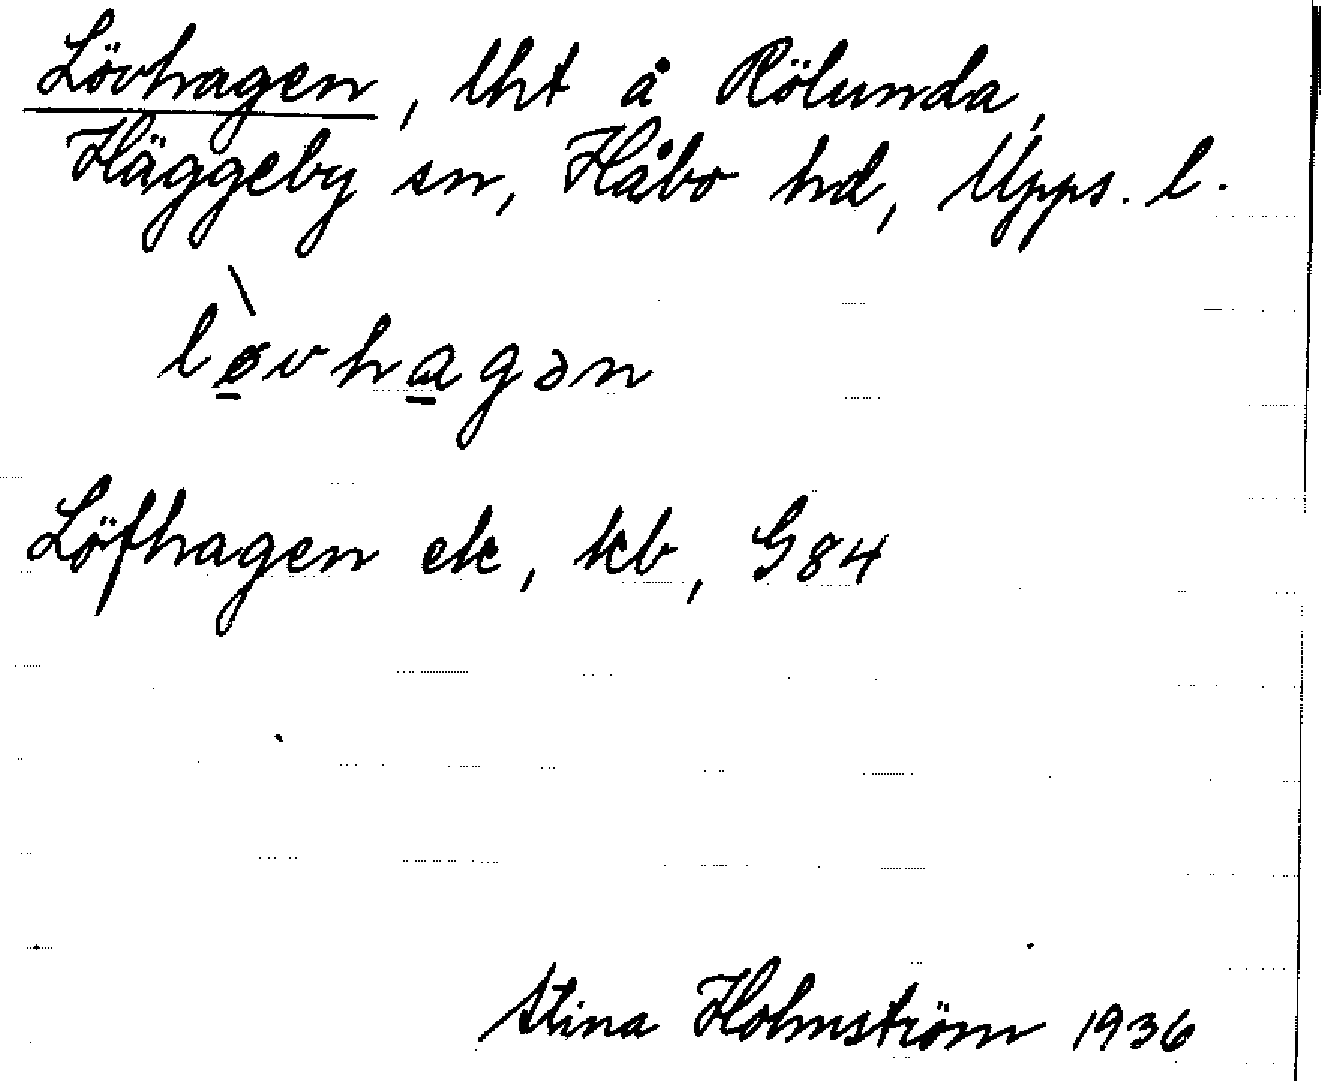 Lövhagen, lht å Rölunda,
Häggeby sn, Håbo hd, Upps. l.
lø̱̀vha̱gən
Löfhagen ek, kb, G84
Stina Holmström 1936